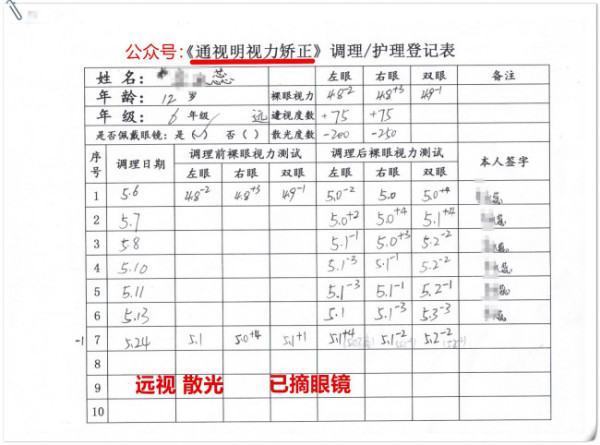 公众号:《通视明视力矫正》调理/护理登记表
姓名: 蕊 左眼 右眼 双眼 备注
年龄: 12 岁 裸眼视力 4.8⁻² 4.8⁺³ 4.9⁻¹
年级: 6 年级 远 遠视度数 +75 +75
是否佩戴眼镜: 是(✓) 否( ) 散光度数 -200 -250
序号 调理日期 调理前裸眼视力测试 调理后裸眼视力测试 本人签字
左眼 右眼 双眼 左眼 右眼 双眼
1 5.6 4.8⁻² 4.8⁺³ 4.9⁻¹ 5.0⁻² 5.0 5.0⁺⁴
2 5.7 5.0⁺² 5.0⁺⁴ 5.1⁺⁴
3 5.8 5.1⁻¹ 5.0⁺³ 5.2⁻²
4 5.10 5.1⁻³ 5.1⁻¹ 5.2⁻²
5 5.11 5.1⁻³ 5.1⁻¹ 5.2⁻¹
6 5.13 5.1 5.1⁻³ 5.3⁻³
-1 7 5.24 5.1 5.0⁺⁴ 5.1⁺¹ 5.1⁺⁴ 5.1⁻² 5.2⁻²
8
9 远视 散光 已摘眼镜
10